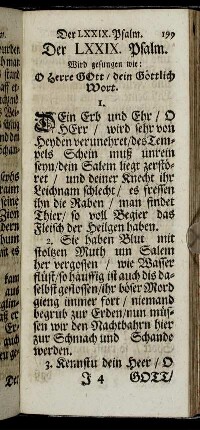 Der LXXIX. Psalm. 199
Der LXXIX. Psalm.
Wird gesungen wie:
O Herre GOtt / dein Göttlich
Wort.
1.
DEin Erb und Ehr / O
HErr / wird sehr von
Heyden verunehret / des Tem-
pels Schein muß unrein
seyn / dein Salem liegt zerstö-
ret / und deiner Knecht ihr
Leichnam schlecht / es fressen
ihn die Raben / man findet
Thier / so voll Begier das
Fleisch der Heilgen haben.
2. Sie haben Blut mit
stoltzem Muth um Salem
her vergossen / wie Wasser
flüst / so häuffig ist auch dis da-
selbst geflossen / ihr böser Mord
gieng immer fort / niemand
begrub zur Erden / nun müs-
sen wir den Nachbahrn hier
zur Schmach und Schande
werden.
3. Kennstu dein Heer / O
J 4 GOTT /